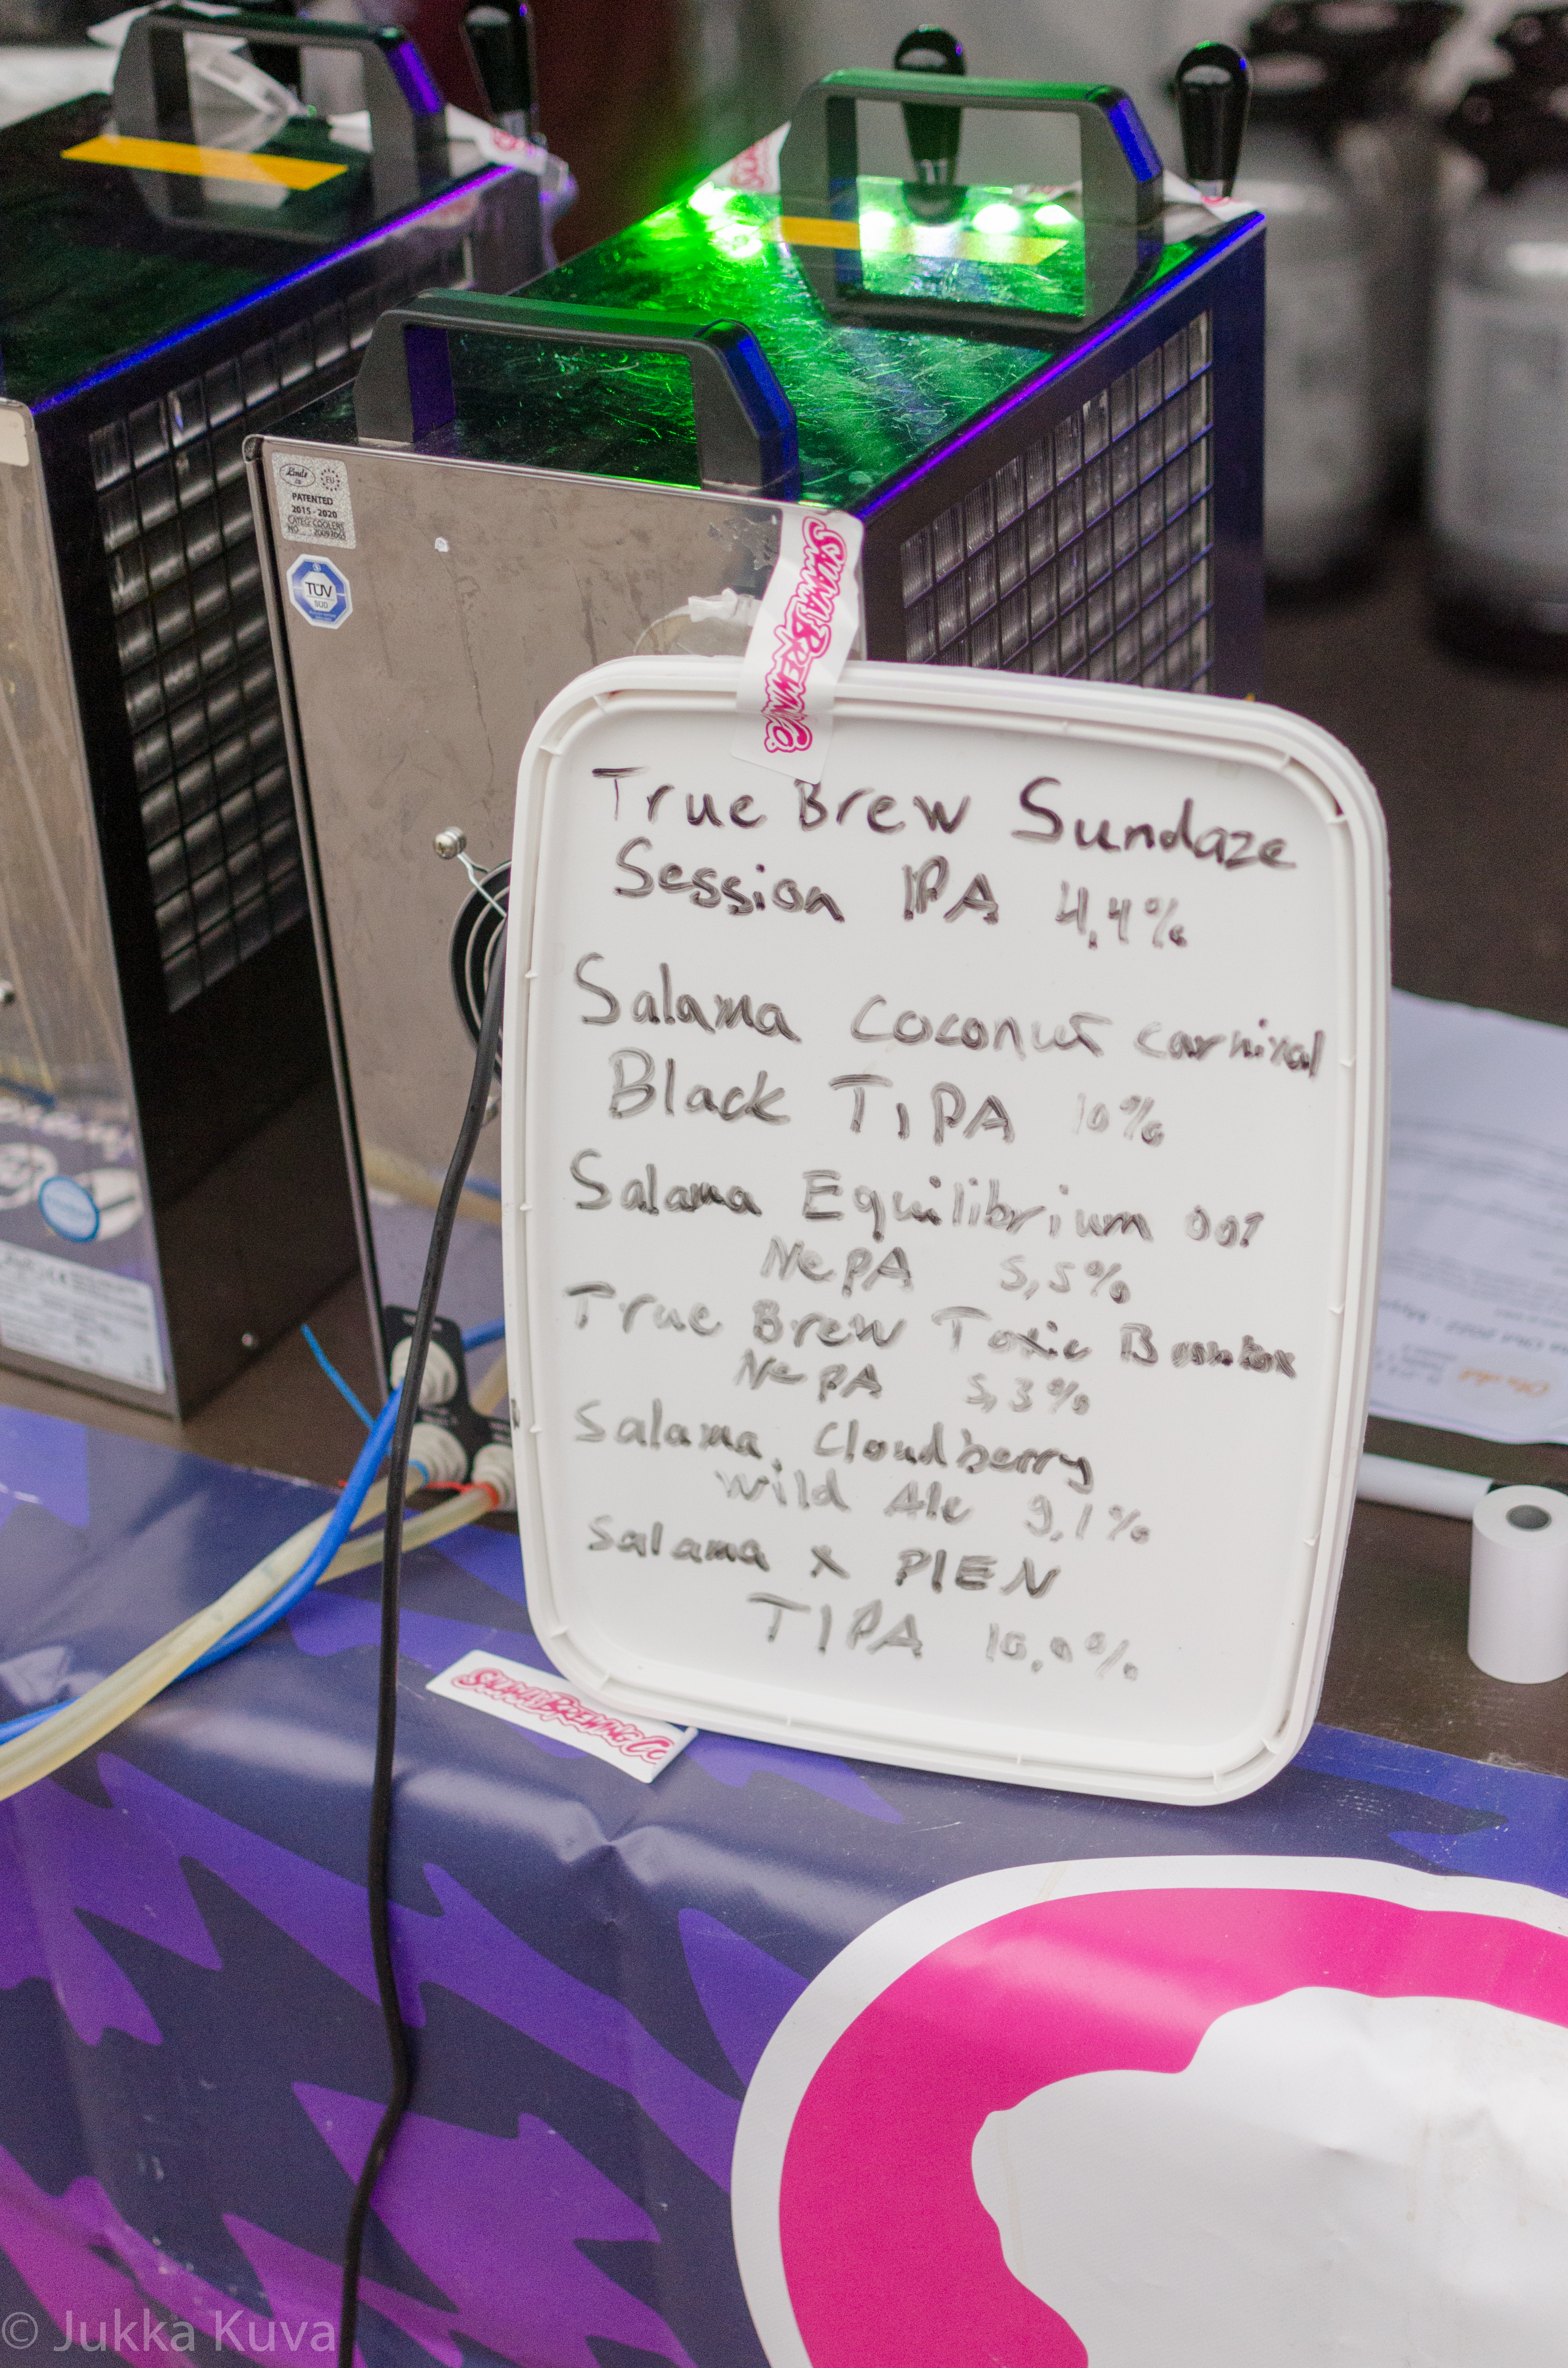 Linds
EU
PATENTED
2015 - 2020
CATEG. COOLERS
TÜV
SÜD
SALAMA BREWING CO.
True Brew Sundaze
Session IPA 4,4%
Salama Coconut carnival
Black TIPA 10%
Salama Equilibrium 001
NePA 5,5%
True Brew Toxic
NePA 5,3%
Salama Cloudberry
wild Ale 9,1%
Salama x PIEN
TIPA 10,0%
SALAMA BREWING CO
© Jukka Kuva